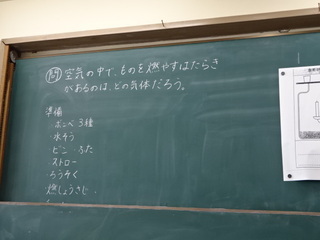 問 空気の中で、ものを燃やすはたらき
があるのは、どの気体だろう。
準備
・ボンベ3種
・水そう
・ビン ・ふた
・ストロー
・ろうそく
・燃しょうさじ